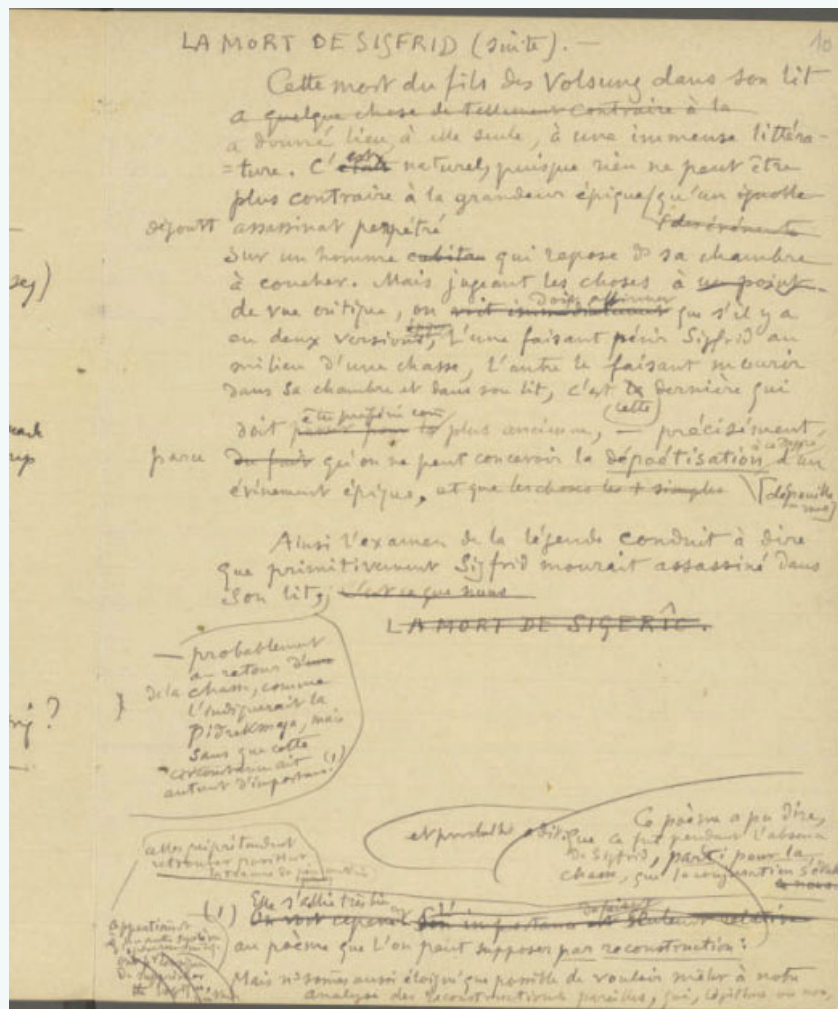 LA MORT DE SIGFRID (suite). —
10
Cette mort du fils des Volsung dans son lit
a quelque chose de tellement contraire à la
a donné lieu, à elle seule, à une immense littéra-
=ture. C'était est naturel, puisque rien ne peut être
plus contraire à la grandeur épique qu'un ignoble
assassinat perpétré
sur un homme qui repose ds sa chambre
à coucher. Mais jugeant les choses à un point
de vue critique, on voit immédiatement doit affirmer que s'il y a
eu deux versions, l'une faisant périr Sigfrid au
milieu d'une chasse, l'autre le faisant mourir
dans sa chambre et dans son lit, c'est la dernière qui
cette
doit plus ancienne, — précisément,
parce du fait qu'on ne peut concevoir la dépoétisation d'un
événement épique, et que les choses les + simples
Ainsi l'examen de la légende conduit à dire
que primitivement Sigfrid mourait assassiné dans
son lit, c'est ce que nous
LA MORT DE SIGERÎC.
— probablement
au retour d'une
de la chasse, comme
l'indiquerait la
mais
sans que cette
circonstance ait
autant d'importance. (1)
Ce poème a pu dire,
que ce fut pendant l'absence
de Sigfrid, parti pour la
chasse, que la conjuration
celles qui prétendent
retrouver
(1) Elle s'allie très bien
On voit cependant Son importance est seulement relative
au poème que l'on peut supposer par reconstruction :
Mais ns sommes aussi éloigné que possible de vouloir mêler à notre
analyse des reconstructions pareilles, qui, légitimes ou non,